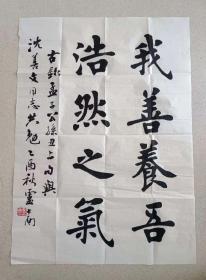 我善養吾
浩然之氣
古錄孟子公孫丑上句與
沈善文同志共勉乙酉秋盧前